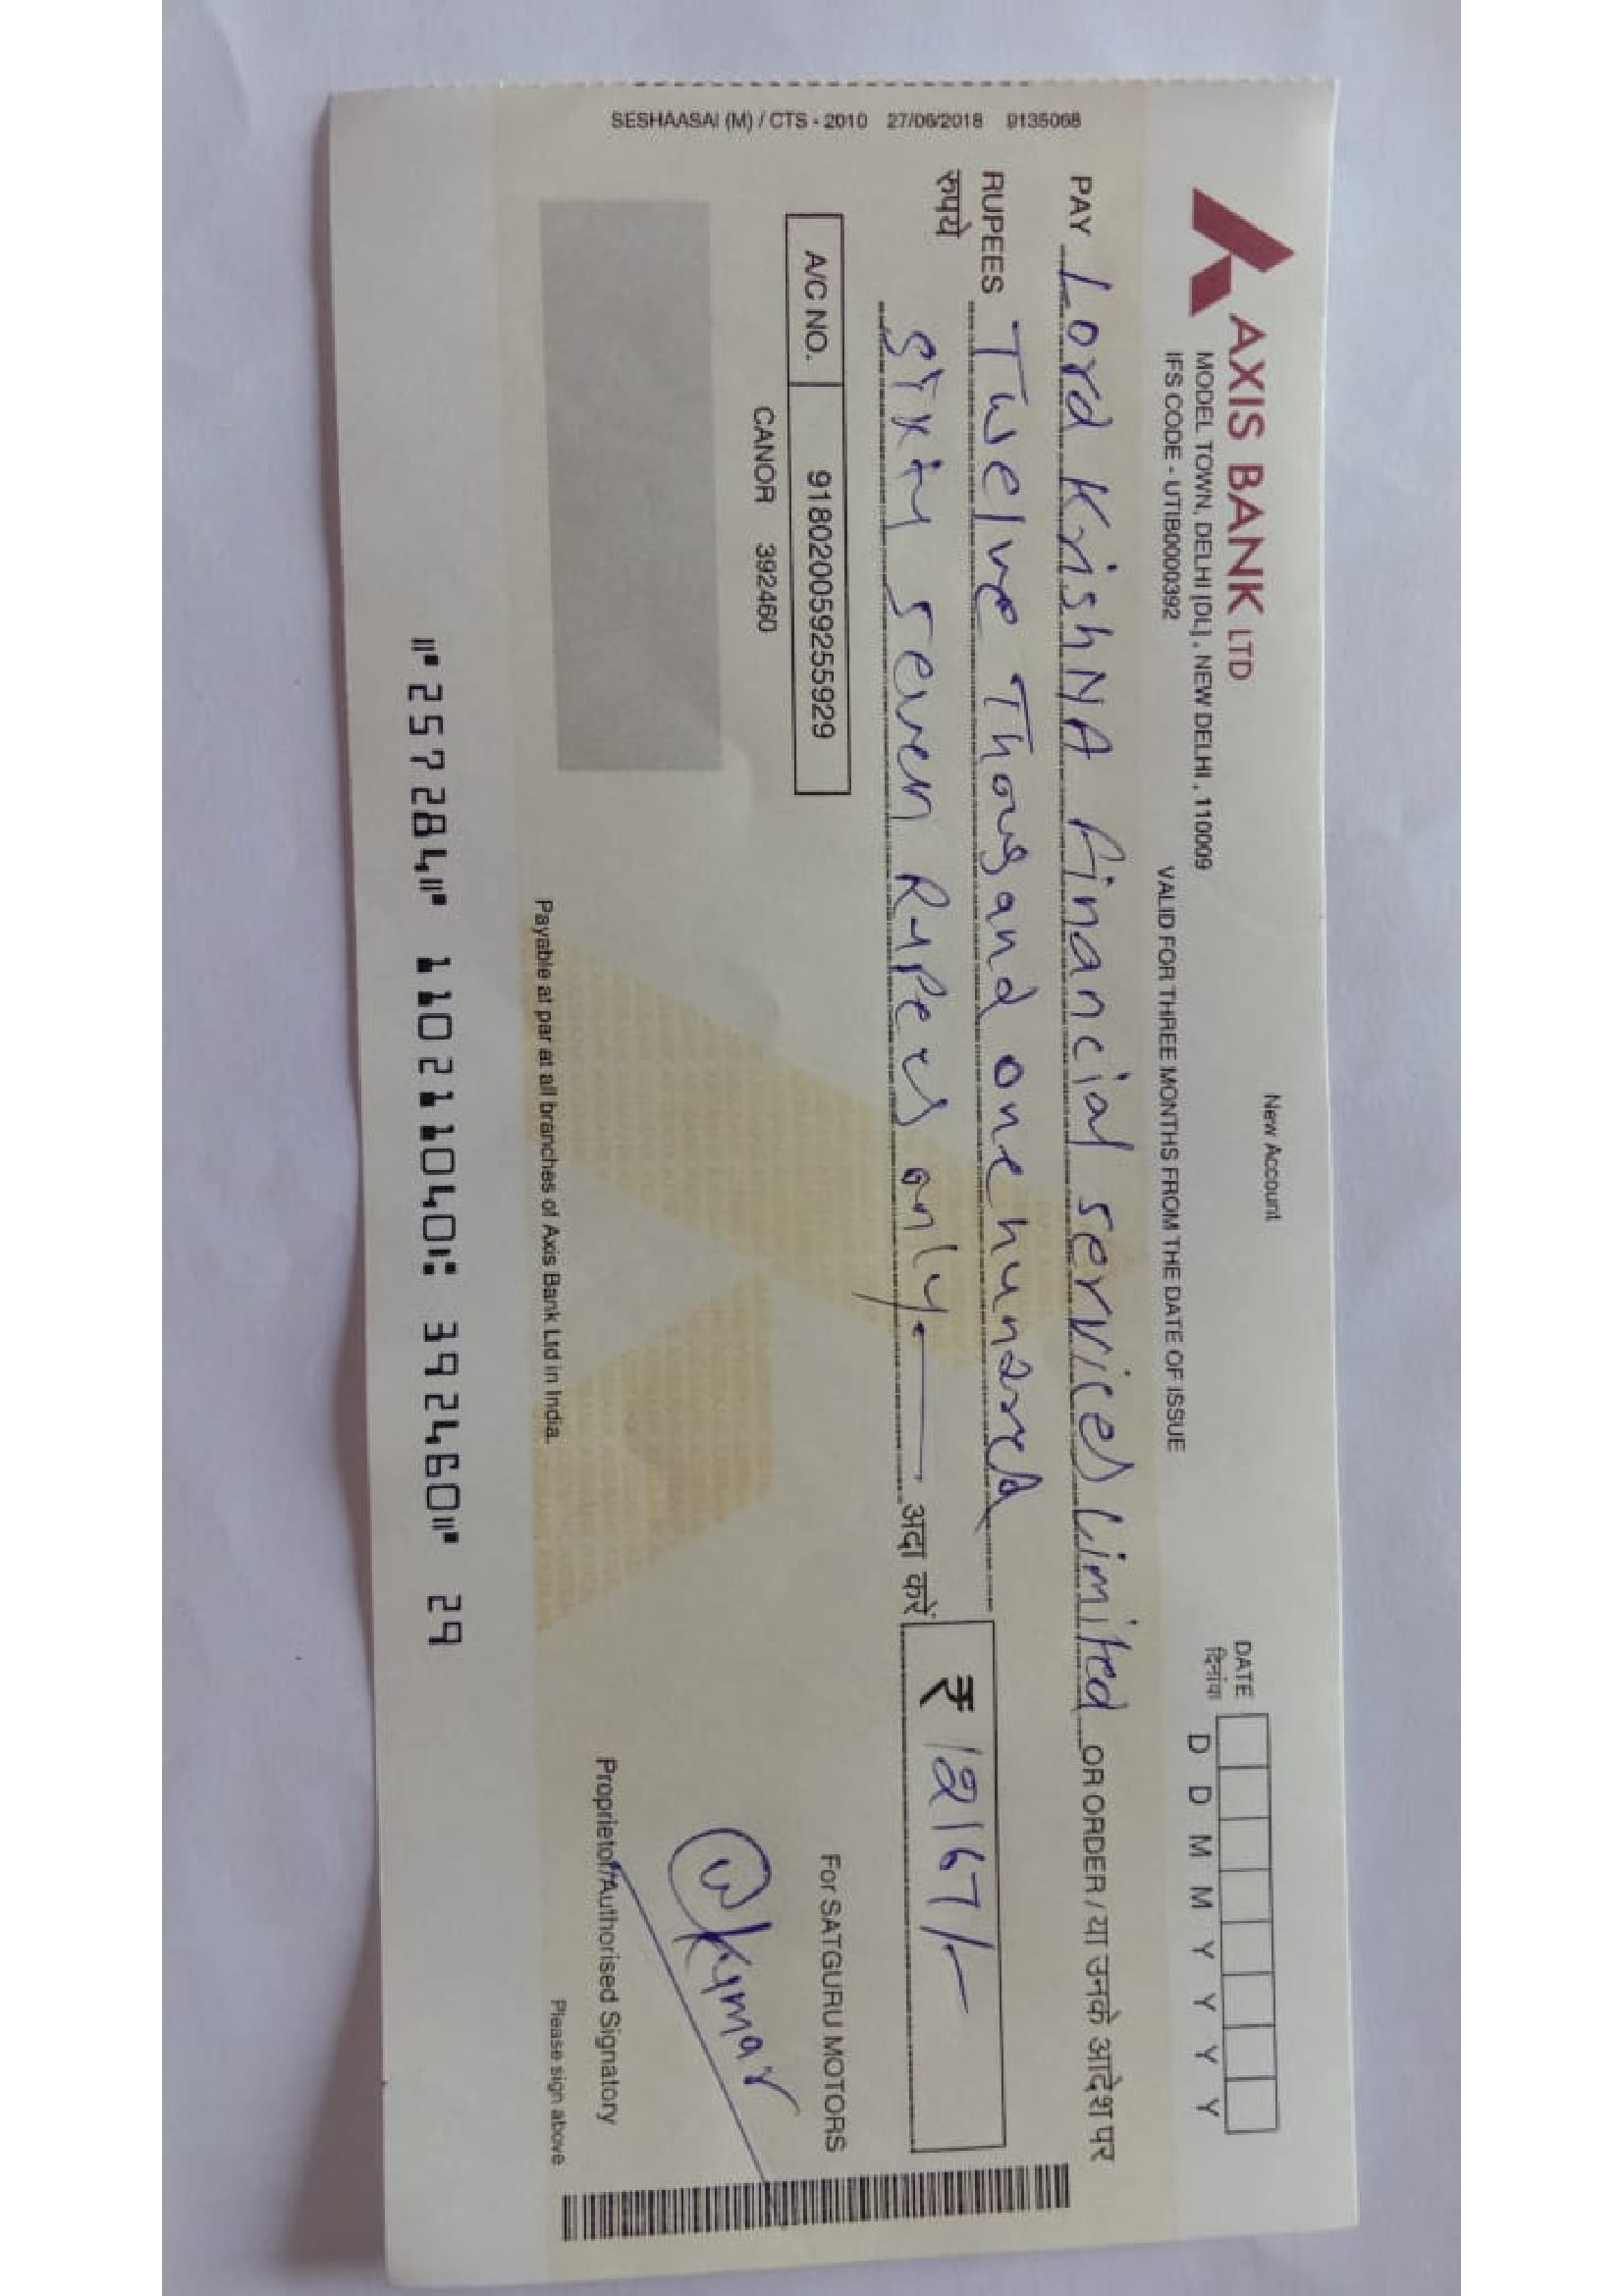 SESHAASAI (M) / CTS - 2010 27/06/2018 9135068
AXIS BANK LTD
MODEL TOWN, DELHI [DL], NEW DELHI, 110009
IFS CODE - UTIB0000392
New Account
VALID FOR THREE MONTHS FROM THE DATE OF ISSUE
DATE
दिनांक
D D M M Y Y Y Y
PAY Lord KrishNA financial services Limited OR ORDER / या उनके आदेश पर
RUPEES Twelve Thousand one hundred
रुपये
sixty seven Rupees only अदा करें
₹ 12167/-
A/C NO. 918020059255929
CANOR 392460
For SATGURU MOTORS
Kumar
Proprietor/Authorised Signatory
Please sign above
Payable at par at all branches of Axis Bank Ltd in India.
⑈257284⑈ 110211040⑆ 392460⑈ 29